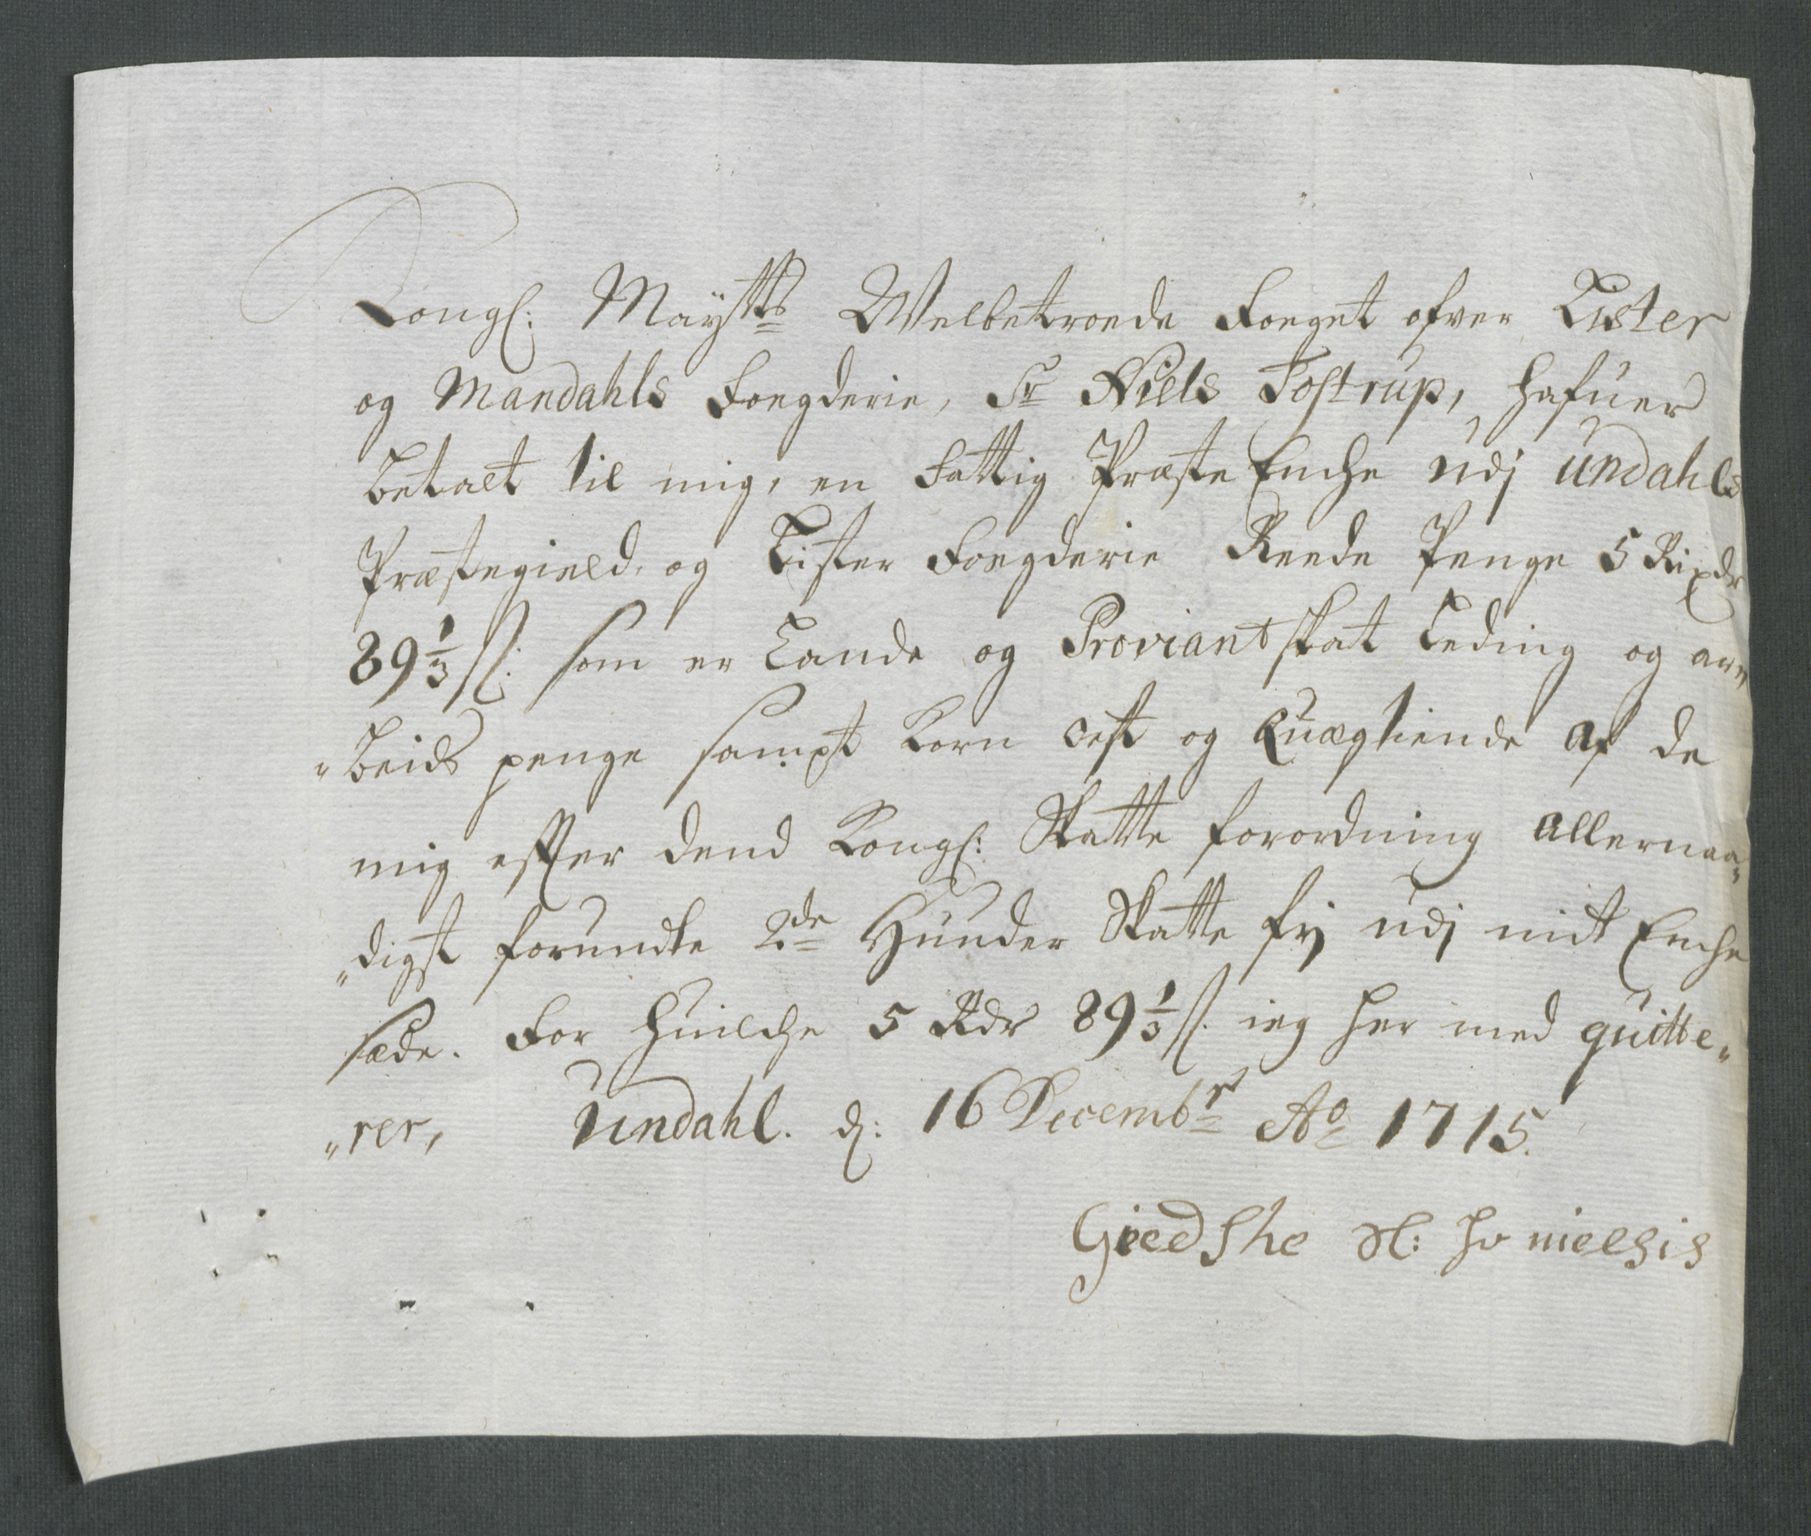 Kongl: Maÿtts Welbetroede Foeget ofver Lister
og Mandahls Foegderie, Sr Niels Tostrup, hafuer
betalt til mig, en Fattig Præste Enche udj Undahls
Præstegield, og Lister Foegderie Reede Penge 5 Rixdr
89 1/3 ß: som er Lande og Proviantskat Leding og ar„
„beids penge sampt Korn Oest og Quægtiende af de
mig efter dend Kongl: Skatte forordning allernaa„
„digst forundte 2de Hunder Skatte frj udj mit Enche
sæde. For huilche 5 Rdr 89 1/3 ß. ieg her med quitte„
„rer, Undahl. d: 16 Decembr Ao 1715.
Giedshe Sl: Hr nielsis